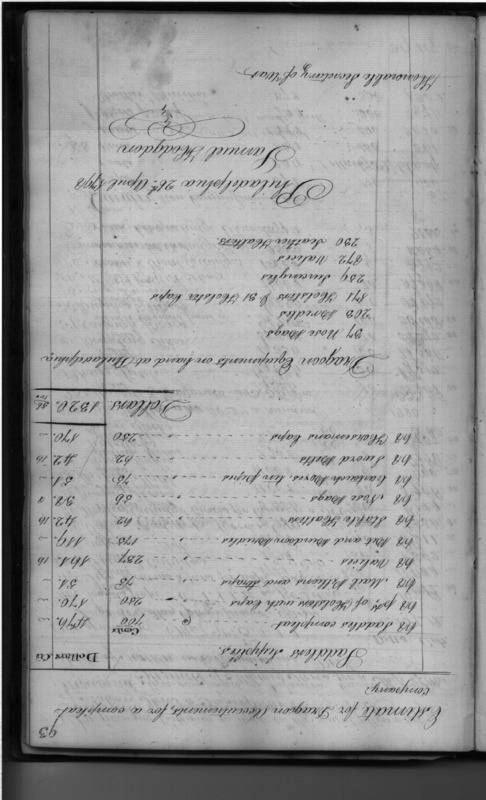 93
Estimate for Dragoon Accoutrements, for a compleat
Company.
Saddlers Supplies. Cents Dollars Cts
68 Saddles compleat @ 700 476. ..
68 prs of Holsters with Caps 250 170. ..
68 Mail Pillions and Straps 75 51. ..
68 Valices 237 161. 16
68 Bit and Bridoon Bridles 175 119. ..
68 Stable Halters 62 42. 16
68 Nose Bags 56 38. 8
68 Cartouch Boxes, tin pipes 75 51. ..
68 Sword Belts 62 42. 16
68 Horsemans Caps 250 170. ..
Dollars 1320.
Dragoon Equipments on hand at Philadelphia
37 Nose Bags
203 Bridles
871 Holsters & 31 Holster Caps
259 Surcingles
872 Valices
230 Leather Halters
Philadelphia 26th April 1798
Samuel Hodgdon
Honorable Secretary of War